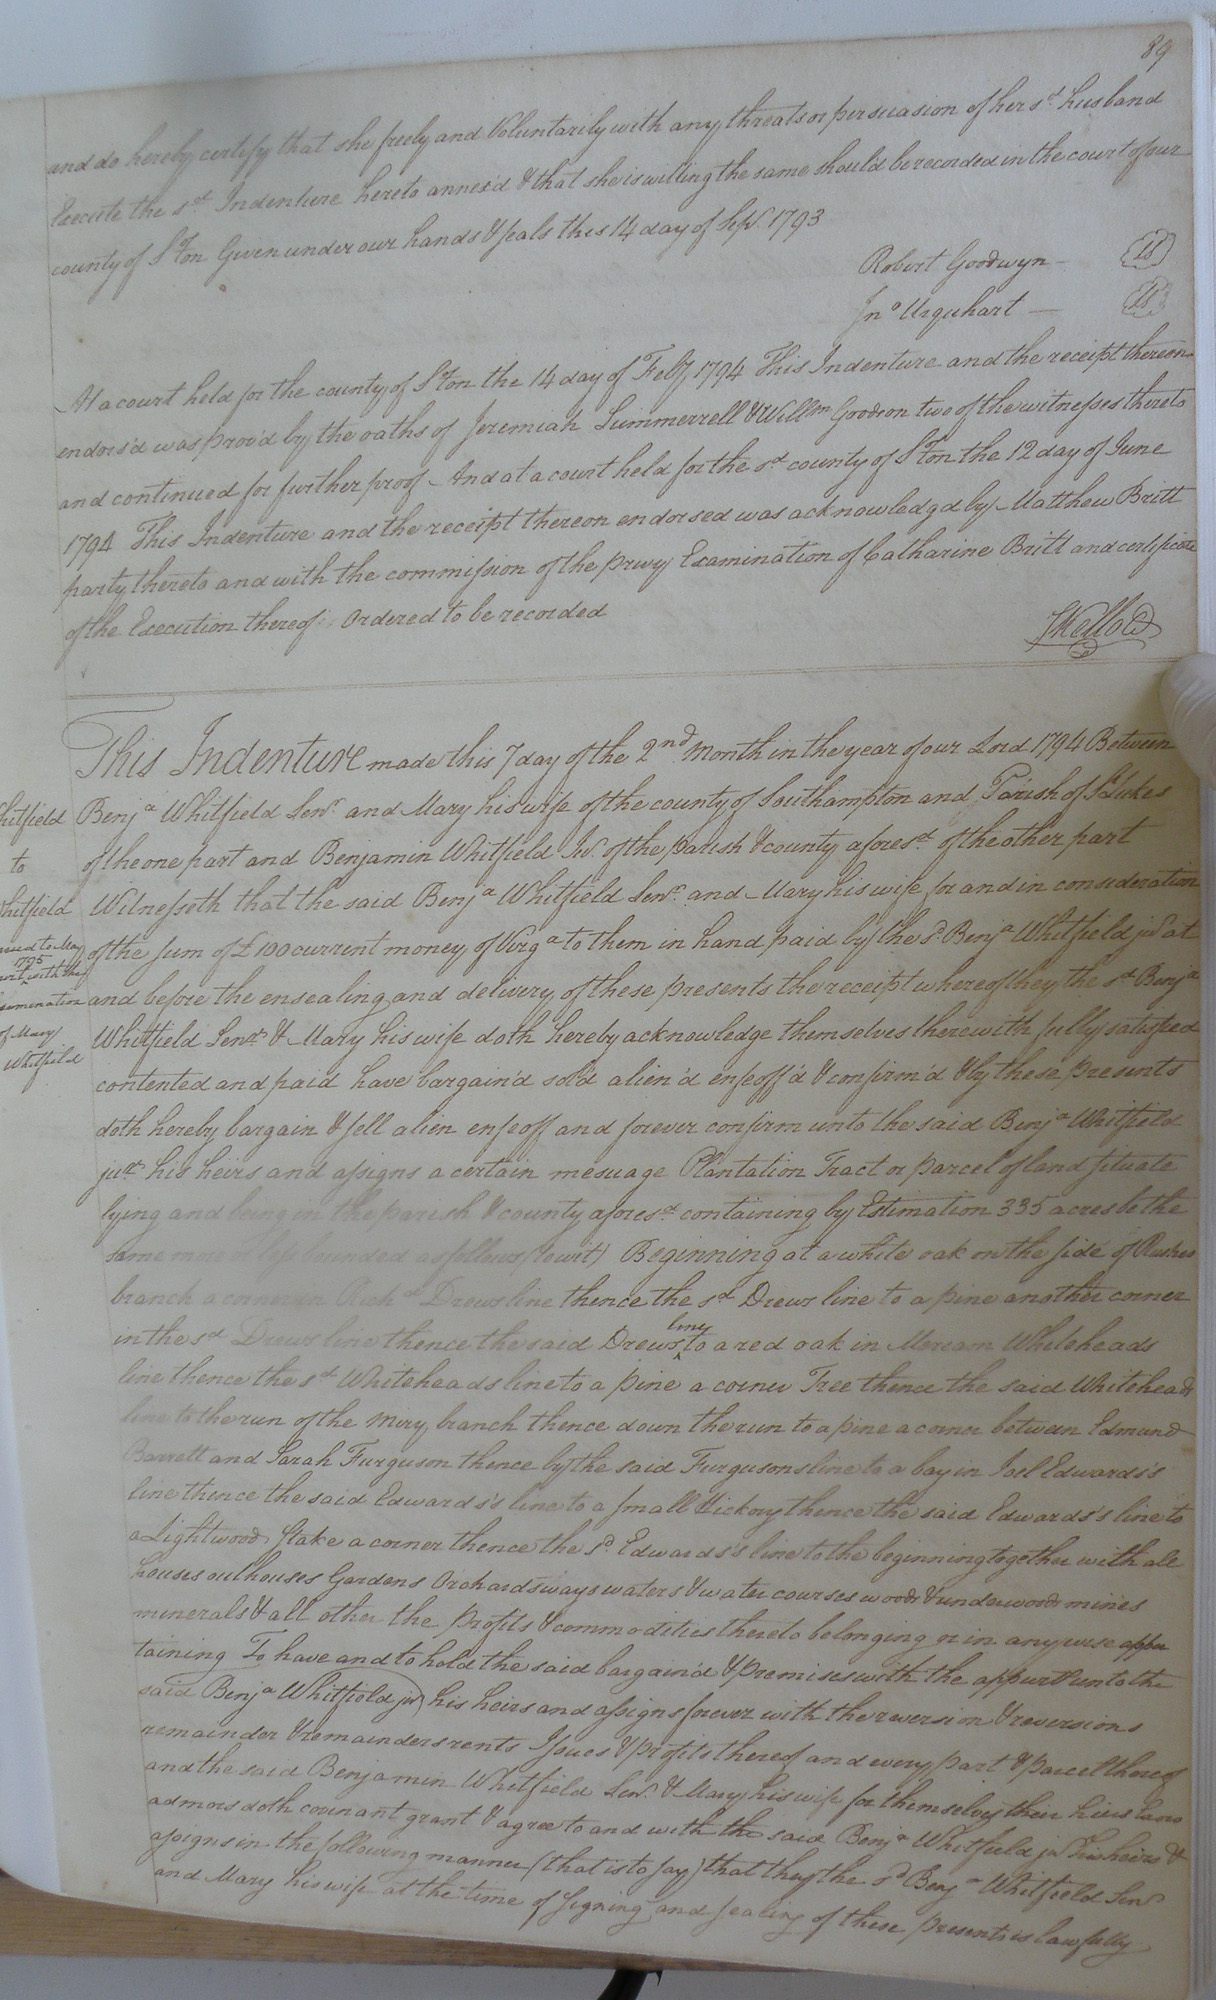 89
and do hereby certify that she freely and Voluntarily with any threats or persuasion of her sd husband
Execute the sd Indenture hereto annex'd & that she is willing the same should be recorded in the court of our
county of S.ton Given under our hands & seals this 14 day of Sepr. 1793
Robert Goodwyn — LS
Jno Urquhart — LS
At a court held for the county of S.ton the 14 day of Feby 1794 This Indenture and the receipt thereon
endors'd was prov'd by the oaths of Jeremiah Summerrell & Willm Goodson two of the witnesses thereto
and continued for further proof – And at a court held for the sd county of S.ton the 12 day of June
1794 This Indenture and the receipt thereon endorsed was acknowledgd by Matthew Britt
party thereto and with the commission of the privy Examination of Catharine Britt and certificate
of the Execution thereof ordered to be recorded
This Indenture made this 7 day of the 2nd Month in the year of our Lord 1794 Between
Benja Whitfield Senr. and Mary his wife of the county of Southampton and Parish of St Lukes
of the one part and Benjamin Whitfield Jur. of the parish & county aforesd. of the other part
Witnesseth that the said Benja Whitfield Senr. and Mary his wife for and in consideration
of the sum of £100 current money of Virga to them in hand paid by the sd. Benja Whitfield jur at
and before the ensealing and delivery of these presents the receipt whereof they the sd Benja
Whitfield Senr. & Mary his wife doth hereby acknowledge themselves therewith fully satisfied
contented and paid have bargain'd sold alien'd enfeoff'd & confirm'd & by these presents
doth hereby bargain & sell alien enfeoff and forever confirm unto the said Benja Whitfield
jur. his heirs and assigns a certain mesuage Plantation Tract or parcel of land situate
lying and being in the parish & county aforesd. containing by Estimation 335 acres be the
same more or less bounded as follows (towit) Beginning at a white oak on the side of Rushes
branch a corner in Richd Drews line thence the sd Drews line to a pine another corner
in the sd Drews line thence the said Drews line to a red oak in Meream Whiteheads
line thence the sd Whiteheads line to a pine a corner Tree thence the said Whiteheads
line to the run of the Miry branch thence down the run to a pine a corner between Edmund
Barrett and Sarah Furguson thence by the said Furgusons line to a bay in Joel Edwards's
line thence the said Edwards's line to a small Hickory thence the said Edwards's line to
a Lightwood Stake a corner thence the sd. Edwards's line to the beginning together with all
houses outhouses Gardens Orchards ways waters & water courses woods & underwoods mines
minerals & all other the profits & commodities thereto belonging or in any wise apper
taining To have and to hold the said bargain'd & premises with the appurts unto the
said Benja Whitfield jur his heirs and assigns forever with the reversion & reversions
remainder & remainders rents Issues & profits thereof and every part & parcel thereof
and the said Benjamin Whitfield Senr. & Mary his wife for themselves their heirs
admors doth covenant grant & agree to and with the said Benja Whitfield jur his heirs &
assigns in the following manner (that is to say) that they the sd Benja Whitfield Senr
and Mary his wife at the time of signing and sealing of these presents is lawfully
hitfield
to
hitfield
to May
1795
with the
mination
of Mary
Whitfield